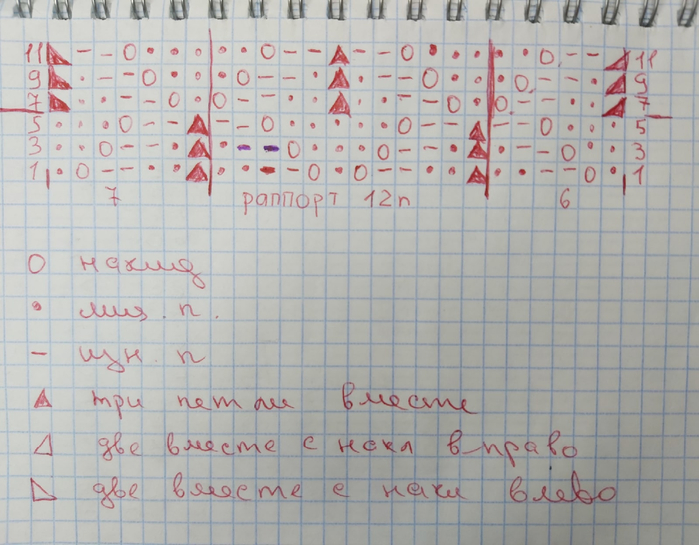 11 11
9 9
7 7
5 5
3 3
1 1
7 раппорт 12п 6
О накид
• лиц. п.
– изн. п
▲ три петли вместе
две вместе с накл вправо
две вместе с накл влево